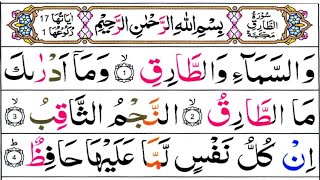 سُوْرَةُ الطَّارِقِ مَكِّيَّةٌ
بِسْمِ اللّٰهِ الرَّحْمٰنِ الرَّحِيْمِ
اٰيَاتُهَا 17 رُكُوْعُهَا 1
وَالسَّمَآءِ وَالطَّارِقِ ۙ﴿1﴾ وَمَاۤ اَدْرٰىكَ
مَا الطَّارِقُ ۙ﴿2﴾ النَّجْمُ الثَّاقِبُ ۙ﴿3﴾
اِنْ كُلُّ نَفْسٍ لَّمَّا عَلَيْهَا حَافِظٌ ؕ﴿4﴾